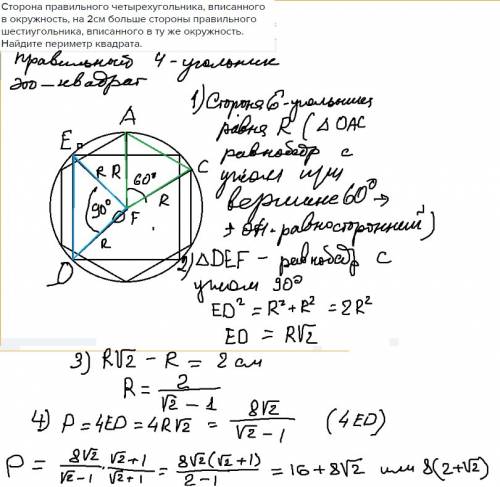 Сторона правильного четырехугольника, вписанного
в окружность, на 2см больше стороны правильного
шестиугольника, вписанного в ту же окружность.
Найдите периметр квадрата.
правильный 4-угольник
это-квадрат
1) Сторона 6-угольника
равна R (△ОАС
равнобедр с
углом при
вершине 60° →
→ он-равносторонний)
A
E
C
R R 60°
R
90°
F
R
D
2) △DEF - равнобедр с
углом 90°
ED² = R² + R² = 2R²
ED = R√2
3) R√2 - R = 2 см
R = 2/(√2 - 1)
4) P = 4ED = 4R√2 = 8√2/(√2 - 1) (4ED)
P = 8√2/(√2-1) · (√2+1)/(√2+1) = 8√2(√2+1)/(2-1) = 16+8√2 или 8(2+√2)